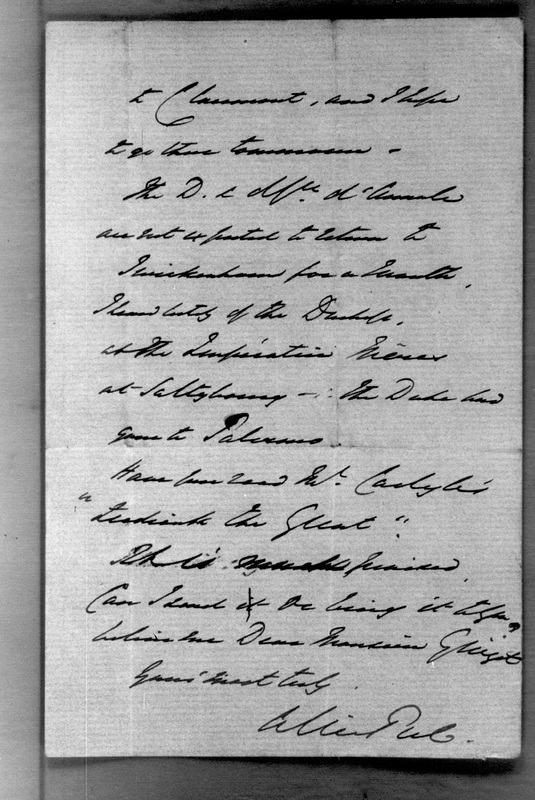 to Claremont, and I hope
to go there tomorrow -
The D. & Dss. d'Aumale
are not expected to return to
Twickenham for a Month,
I heard lately of the Duchess,
at the Impératrice Mère
at Saltzbourg - The Duke had
gone to Palermo.
Have you read Mr. Carlyle's
"Frederick the Great".
It is much praised,
Can I send it or bring it to you?
believe me Dear Monsieur Guizot
Yours most truly